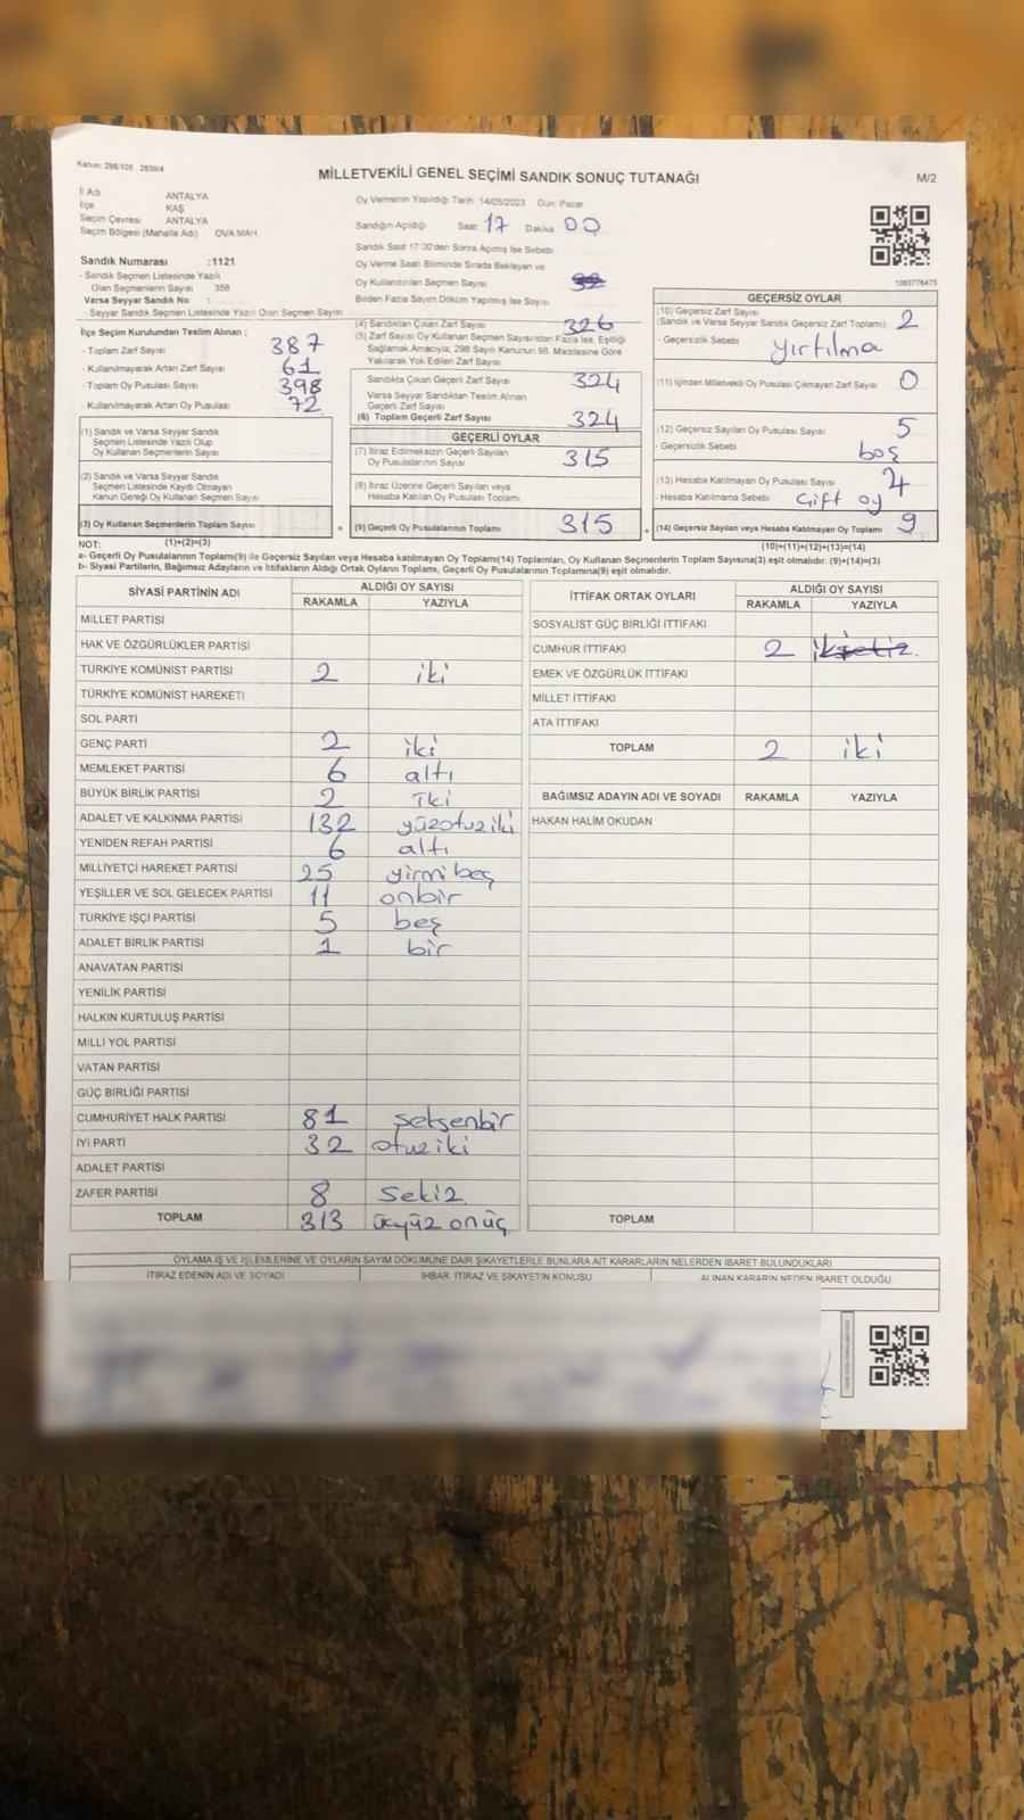 MİLLETVEKİLİ GENEL SEÇİMİ SANDIK SONUÇ TUTANAĞI
M/2
İl Adı ANTALYA
İlçe KAŞ
Seçim Çevresi ANTALYA
Seçim Bölgesi (Mahalle Adı) OVA MAH.
Oy Vermenin Yapıldığı Tarih 14/05/2023 Gün: Pazar
Sandığın Açıldığı Saat 17 Dakika 00
Sandık Saat 17:00'den Sonra Açılmış İse Sebebi
Oy Verme Saati Bitiminde Sırada Bekleyen ve
Oy Kullandırılan Seçmen Sayısı
Birden Fazla Sayım Döküm Yapılmış İse Sayısı
Sandık Numarası :1121
- Sandık Seçmen Listesinde Yazılı
Olan Seçmenlerin Sayısı 358
Varsa Seyyar Sandık No :
- Seyyar Sandık Seçmen Listesinde Yazılı Olan Seçmen Sayısı
İlçe Seçim Kurulundan Teslim Alınan :
- Toplam Zarf Sayısı 387
- Kullanılmayarak Artan Zarf Sayısı 61
- Toplam Oy Pusulası Sayısı 398
- Kullanılmayarak Artan Oy Pusulası 72
(1) Sandık ve Varsa Seyyar Sandık
Seçmen Listesinde Yazılı Olup
Oy Kullanan Seçmenlerin Sayısı
(2) Sandık ve Varsa Seyyar Sandık
Seçmen Listesinde Kaydı Olmayan
Kanun Gereği Oy Kullanan Seçmen Sayısı
(3) Oy Kullanan Seçmenlerin Toplam Sayısı
(1)+(2)=(3)
(4) Sandıktan Çıkan Zarf Sayısı 326
(5) Zarf Sayısı Oy Kullanan Seçmen Sayısından Fazla İse, Eşitliği
Sağlamak Amacıyla, 298 Sayılı Kanunun 98. Maddesine Göre
Yakılarak Yok Edilen Zarf Sayısı
Sandıkta Çıkan Geçerli Zarf Sayısı 324
Varsa Seyyar Sandıktan Teslim Alınan
Geçerli Zarf Sayısı
(6) Toplam Geçerli Zarf Sayısı 324
GEÇERLİ OYLAR
(7) İtiraz Edilmeksizin Geçerli Sayılan
Oy Pusulalarının Sayısı 315
(8) İtiraz Üzerine Geçerli Sayılan veya
Hesaba Katılan Oy Pusulası Toplamı
(9) Geçerli Oy Pusulalarının Toplamı 315
GEÇERSİZ OYLAR
(10) Geçersiz Zarf Sayısı
(Sandık ve Varsa Seyyar Sandık Geçersiz Zarf Toplamı) 2
- Geçersizlik Sebebi yırtılma
(11) İçinden Milletvekili Oy Pusulası Çıkmayan Zarf Sayısı 0
(12) Geçersiz Sayılan Oy Pusulası Sayısı 5
- Geçersizlik Sebebi boş
(13) Hesaba Katılmayan Oy Pusulası Sayısı
- Hesaba Katılmama Sebebi Çift oy
(14) Geçersiz Sayılan veya Hesaba Katılmayan Oy Toplamı 9
(10)+(11)+(12)+(13)=(14)
NOT:
a- Geçerli Oy Pusulalarının Toplamı(9) ile Geçersiz Sayılan veya Hesaba katılmayan Oy Toplamı(14) Toplamları, Oy Kullanan Seçmenlerin Toplam Sayısına(3) eşit olmalıdır. (9)+(14)=(3)
b- Siyasi Partilerin, Bağımsız Adayların ve İttifakların Aldığı Ortak Oyların Toplamı, Geçerli Oy Pusulalarının Toplamına(9) eşit olmalıdır.
SİYASİ PARTİNİN ADI ALDIĞI OY SAYISI
RAKAMLA YAZIYLA
MİLLET PARTİSİ
HAK VE ÖZGÜRLÜKLER PARTİSİ
TÜRKİYE KOMÜNİST PARTİSİ 2 iki
TÜRKİYE KOMÜNİST HAREKETİ
SOL PARTİ
GENÇ PARTİ 2 iki
MEMLEKET PARTİSİ 6 altı
BÜYÜK BİRLİK PARTİSİ 2 iki
ADALET VE KALKINMA PARTİSİ 132 yüzotuziki
YENİDEN REFAH PARTİSİ 6 altı
MİLLİYETÇİ HAREKET PARTİSİ 25 yirmibeş
YEŞİLLER VE SOL GELECEK PARTİSİ 11 onbir
TÜRKİYE İŞÇİ PARTİSİ 5 beş
ADALET BİRLİK PARTİSİ 1 bir
ANAVATAN PARTİSİ
YENİLİK PARTİSİ
HALKIN KURTULUŞ PARTİSİ
MİLLİ YOL PARTİSİ
VATAN PARTİSİ
GÜÇ BİRLİĞİ PARTİSİ
CUMHURİYET HALK PARTİSİ 81 seksenbir
İYİ PARTİ 32 otuziki
ADALET PARTİSİ
ZAFER PARTİSİ 8 Sekiz
TOPLAM 313 üçyüz onüç
İTTİFAK ORTAK OYLARI ALDIĞI OY SAYISI
RAKAMLA YAZIYLA
SOSYALİST GÜÇ BİRLİĞİ İTTİFAKI
CUMHUR İTTİFAKI 2
EMEK VE ÖZGÜRLÜK İTTİFAKI
MİLLET İTTİFAKI
ATA İTTİFAKI
TOPLAM 2 iki
BAĞIMSIZ ADAYIN ADI VE SOYADI RAKAMLA YAZIYLA
HAKAN HALİM OKUDAN
TOPLAM
OYLAMA İŞ VE İŞLEMLERİNE VE OYLARIN SAYIM DÖKÜMÜNE DAİR ŞİKAYETLERLE BUNLARA AİT KARARLARIN NELERDEN İBARET BULUNDUKLARI
İTİRAZ EDENİN ADI VE SOYADI İHBAR, İTİRAZ VE ŞİKAYETİN KONUSU ALINAN KARARIN NEDEN İBARET OLDUĞU